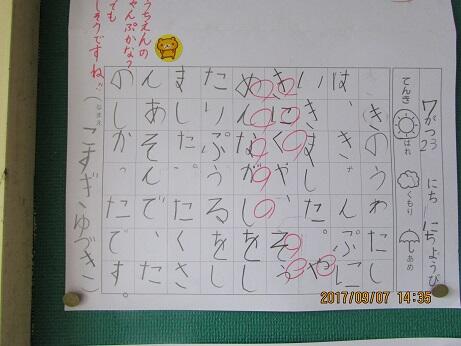 7がつ23にち にちようび
てんき はれ くもり あめ
きのうわたし
は、きゃんぷに
いきました。や
きにくや、そう
めんながしをし
たりぷうるをし
ました。たくさ
んあそんで、た
のしかったです。
(なまえ こすぎゆづき)
うちえんの
ゃんぷかな?
ても
しそうですね
2017/09/07 14:35